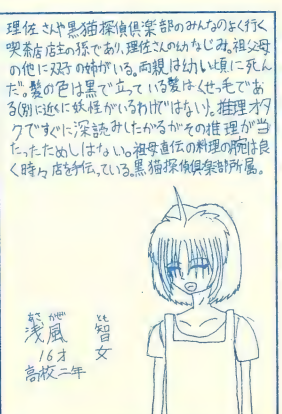 理佐さんや黒猫探偵倶楽部のみんなのよく行く
喫茶店店主の孫であり、理佐さんの幼なじみ。祖父母
の他に双子の姉がいる。両親は幼い頃に死ん
だ。髪の色は黒で立っている髪はくせっ毛であ
る(別に近くに妖怪がいるわけではない)。推理オタ
クですぐに深読みしたがるがその推理が当
たったためしはない。祖母直伝の料理の腕は良
く時々店を手伝っている。黒猫探偵倶楽部所属。
あさ かぜ とも
浅風 智
16才 女
高校二年